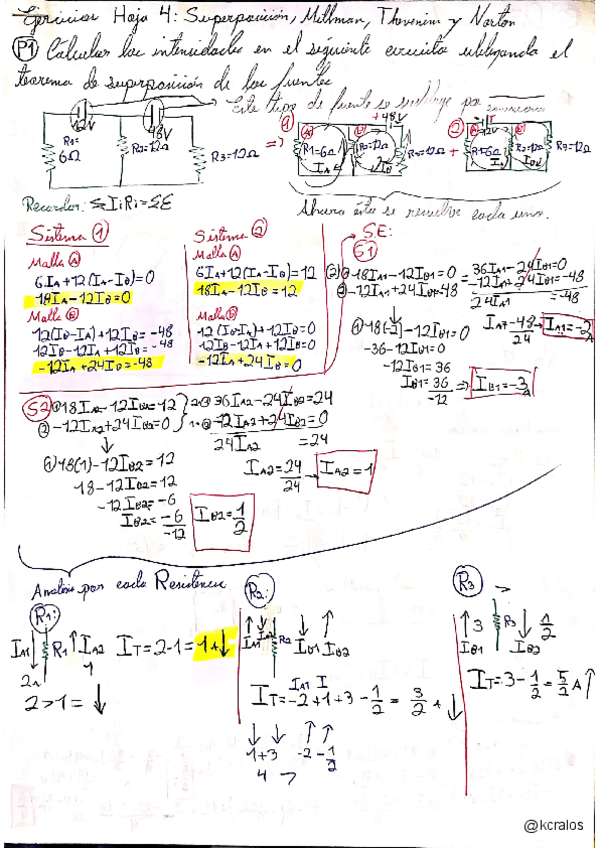 Ejercicios Hoja 4: Superposición, Millman, Thevenin y Norton
P1 Calcular las intensidades en el siguiente circuito utilizando el
teorema de superposición de las fuentes.
Este tipo de fuente se sustituye por
12V 48V
R1=6Ω R2=12Ω R3=12Ω =>
① A B 48V R1=6Ω R2=12Ω R3=12Ω IA IB
+
② 12V A B R1=6Ω R2=12Ω R3=12Ω IA IB
Recordar: ΣIiRi=ΣE
Ahora éste se resuelve cada uno.
Sistema ①
Malla A
6IA+12(IA-IB)=0
18IA-12IB=0
Malla B
12(IB-IA)+12IB=-48
12IB-12IA+12IB=-48
-12IA+24IB=-48
Sistema ②
Malla A
6IA+12(IA-IB)=12
18IA-12IB=12
Malla B
12(IB-IA)+12IB=0
12IB-12IA+12IB=0
-12IA+24IB=0
S.E:
S1
(2)①18IA1-12IB1=0
②-12IA1+24IB1=-48
36IA1-24IB1=0
-12IA1+24IB1=-48
24IA1 =-48
①18(-2)-12IB1=0
-36-12IB1=0
-12IB1=36
IB1=36/-12 => IB1=-3A
IA1=-48/24 → IA1=-2A
S2 ①18IA2-12IB2=12
②-12IA2+24IB2=0
2·① 36IA2-24IB2=24
1·② -12IA2+24IB2=0
24IA2 =24
IA2=24/24 → IA2=1
①18(1)-12IB2=12
18-12IB2=12
-12IB2=-6
IB2=-6/-12
IB2=1/2
Analisis por cada Resistencia
R1:
IA1 ↓ R1 ↑ IA2
2A 1
IT=2-1=1A↓
2>1= ↓
R2:
IA1 IA2 R2 IB1 IB2
IT=-2+1+3-1/2= 3/2 A ↓
1+3 -2-1/2
4
R3
↑3 R3 ↓1/2
IB1 IB2
IT=3-1/2=5/2A↑
@kcralos